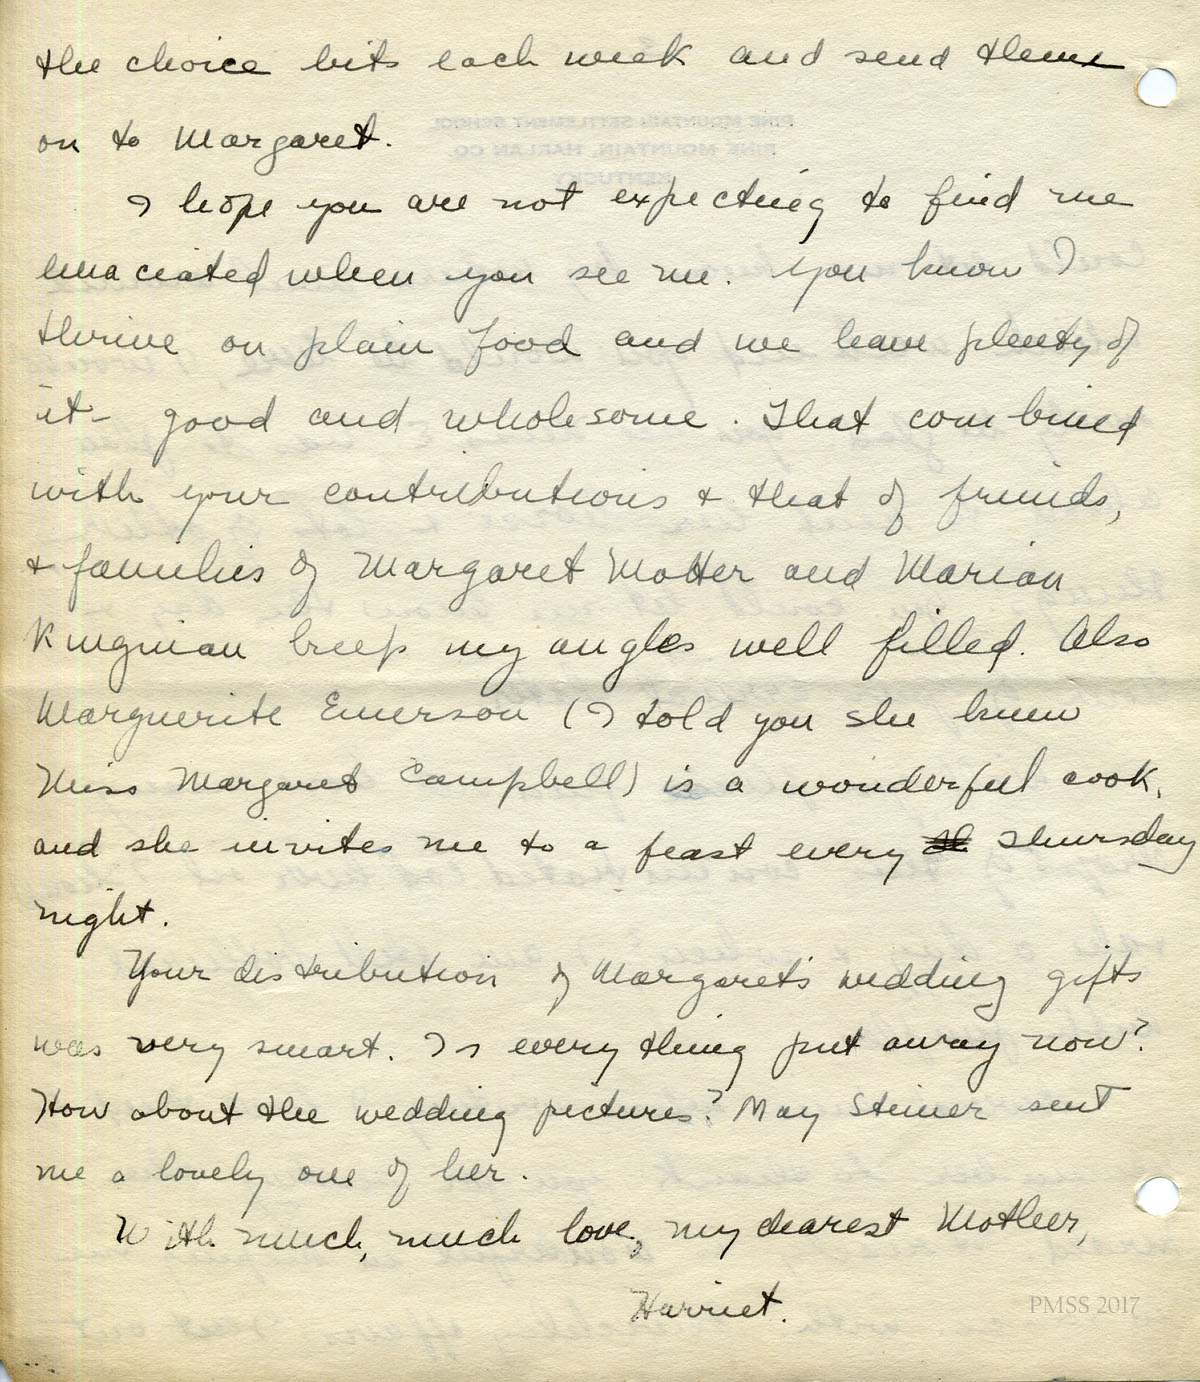 the choice bits each week and send them
on to Margaret.
PINE MOUNTAIN SETTLEMENT SCHOOL
PINE MOUNTAIN, HARLAN CO.
KENTUCKY
I hope you are not expecting to find me
emaciated when you see me. You know I
thrive on plain food and we have plenty of
it - good and wholesome. That combined
with your contributions & that of friends,
& families of Margaret Motter and Marian
Kingman keep my angles well filled. Also
Marguerite Emerson (I told you she knew
Miss Margaret Campbell) is a wonderful cook,
and she invites me to a feast every Thursday
night.
Your distribution of Margaret's wedding gifts
was very smart. Is everything put away now?
How about the wedding pictures? May Steiner sent
me a lovely one of her.
With much, much love, my dearest Mother,
Harriet.
PMSS 2017